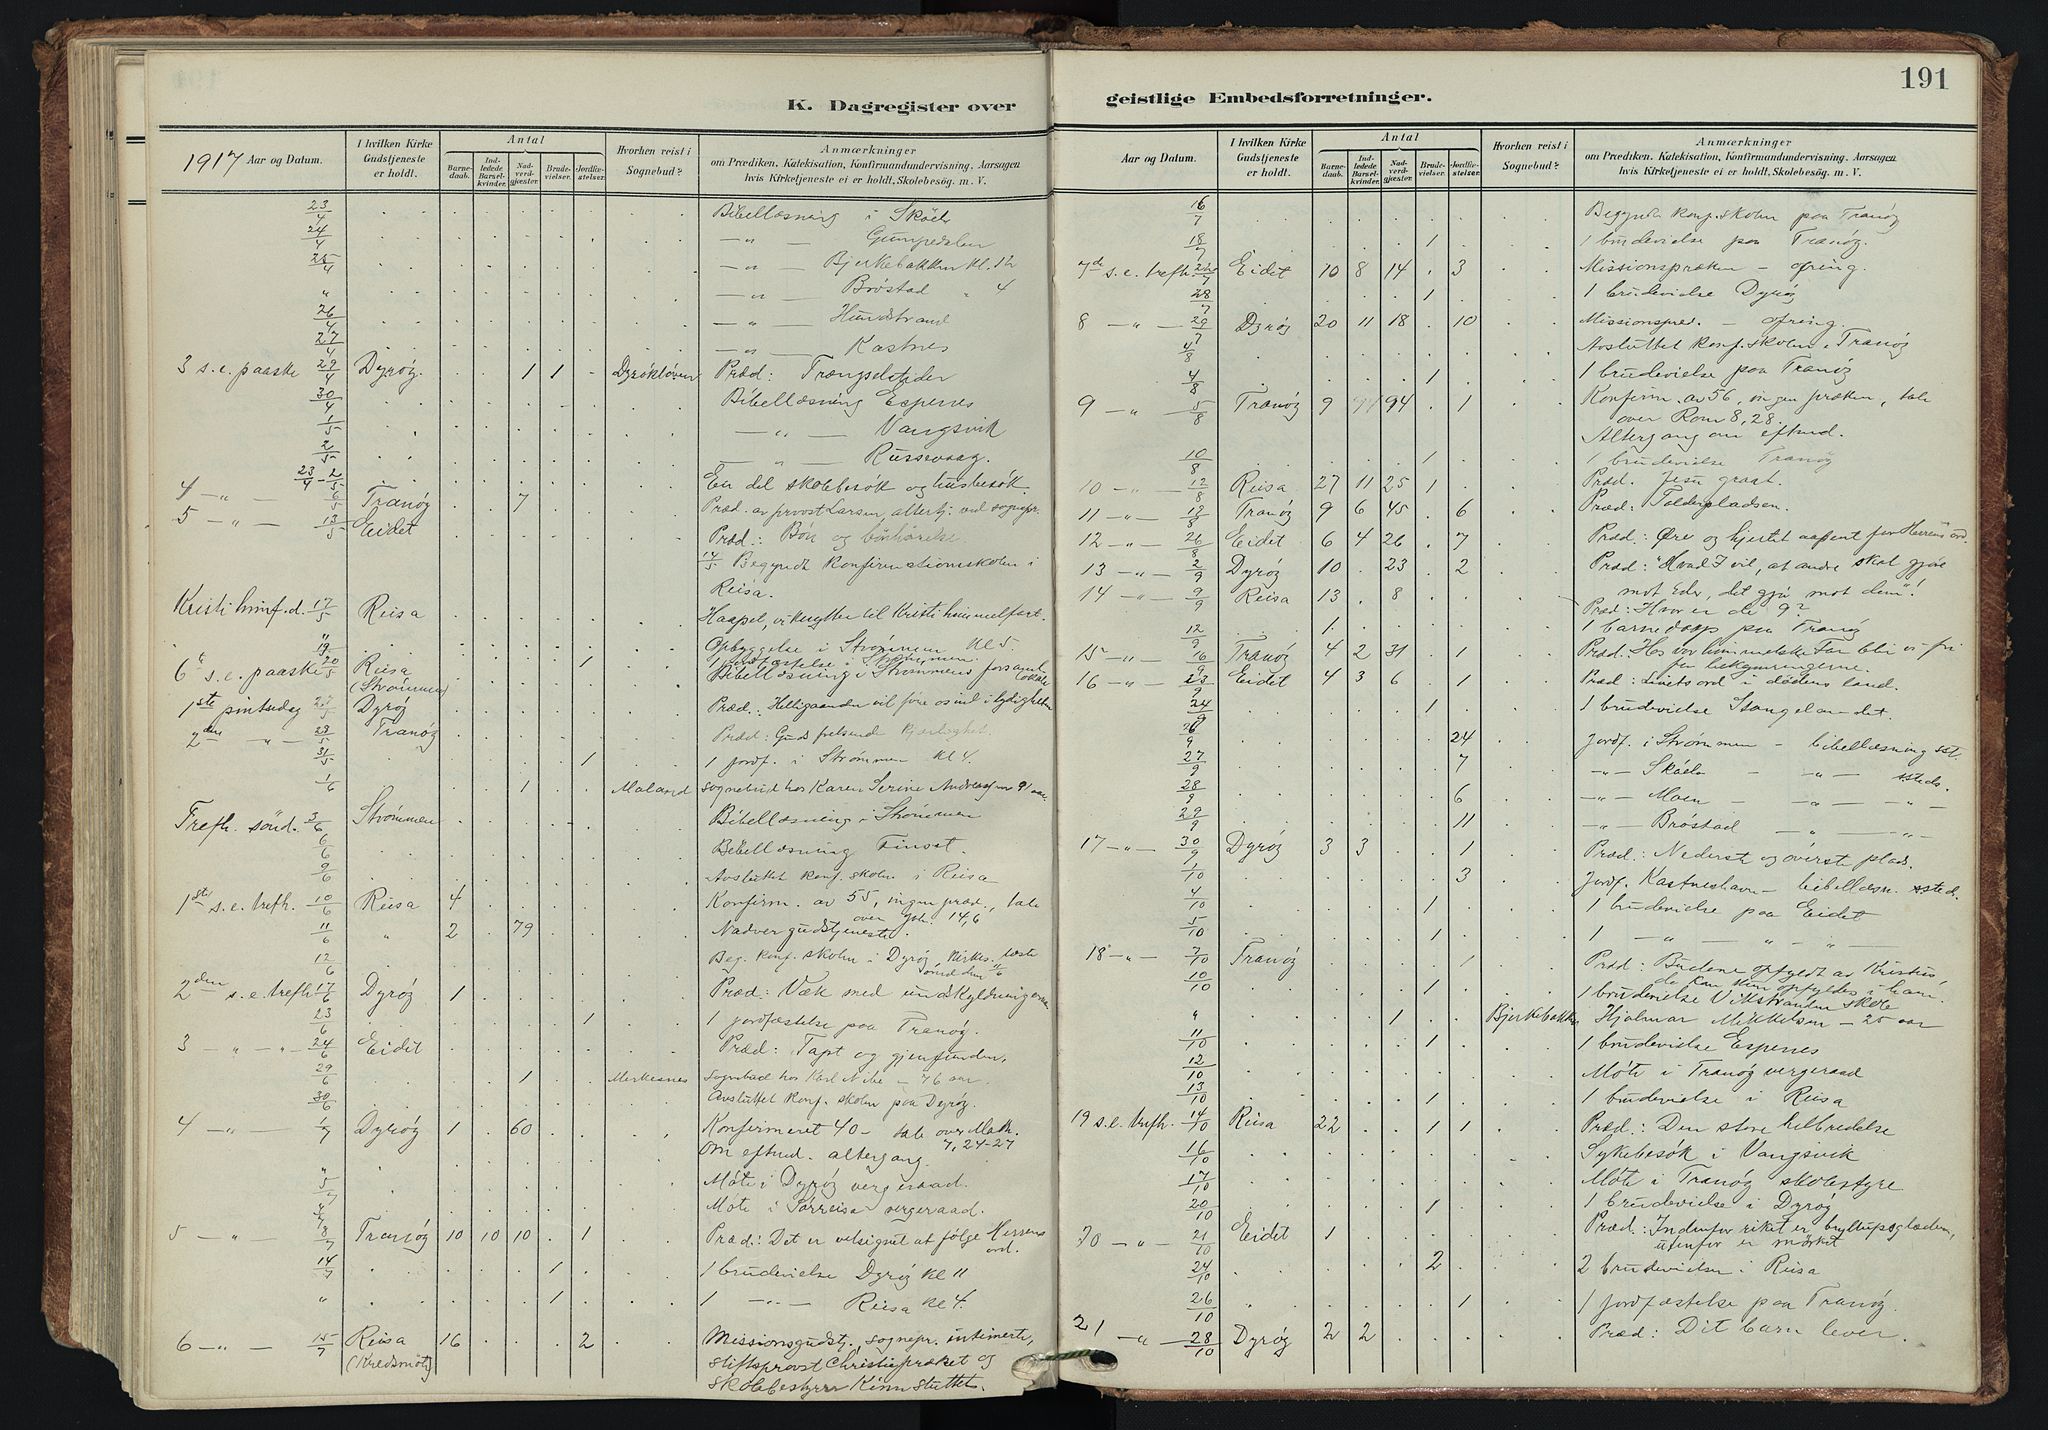 K. Dagregister over
Aar og Datum. I hvilken Kirke Gudstjeneste er holdt. Antal Barnedaab. Indledede Barselkvinder. Nadverdgjæster. Brudevielser. Jordfæstelser. Hvorhen reist i Sognebud? Anmærkninger om Prædiken, Katekisation, Konfirmandundervisning, Aarsagen hvis Kirketjeneste ei er holdt, Skolebesøg m. V.
1917
23/4 Bibellæsning i Skøelv
24/4 — " — Gumpedalen
25/4 — " — Bjerkebakken kl. 12
" — " — Brøstad " 4
26/4 — " — Hundstrand
27/4 — " — Kastnes
3 s. e. paaske 29/4 Dyrøy. 1 1 - Dyrökløven Præd: Trængselstider
30/4 Bibellæsning Espenes
1/5 — " — Vangsvik
2/5 — " — Russevaag.
23/4 - 2/5 En del skolebesøk og husbesøk.
4 — " — 6/5 Tranøy 7 Præd. av provst Larsen altertj. ved sognepr.
5 — " — 13/5 Eidet Præd.: Bøn og bönhörelse
14/5 Begyndt konfirmationsskolen i
Reisa.
Kristi himf. d. 17/5 Reisa Haapet, vi knytter til Kristi himmelfart.
19/5 Opbyggelse i Strömmen kl 5.
1 1 jordfæstelse i Strömmen.
6te s. e. paaske 20/5 Reisa (Strömmen) Bibellæsning i Strömmens forsaml. lokale
1ste pintsedag 27/5 Dyrøy Præd.: Helligaanden vil føre os ind i lydigheten
2den — " — 28/5 Tranøy Præd: Guds frelsende kjerlighet.
31/5 1 1 jordf. i Strömmen kl 4.
1/6 1 Moland sognebud hos Karen Serine Andreassen 91 aar.
Trefh. sönd. 3/6 Strömmen Bibellæsning i Strömmen
6/6 Bibellæsning Finset.
9/6 Avsluttet konf. skolen i Reisa
1ste s. e. trefh. 10/6 Reisa 4 Konfirm. av 55, ingen præd., tale
over Joh. 14,6
11/6 " 2 79 Nadvergudstjeneste.
12/6 Beg. konf. skolen i Dyrøy,
2den s. e. trefh 17/6 Dyrøy 1 Præd: Væk med undskyldningerne
23/6 1 1 jordfæstelse paa Tranøy.
3 " — " — 24/6 Eidet Præd: Tapt og gjenfunden.
29/6 1 Merkesnes sognebud hos Karl Nibe — 76 aar.
30/6 Avsluttet konf. skolen paa Dyrøy.
4 — " — 1/7 Dyrøy 1 60 Konfirmeret 40 — tale over Math.
7, 24-27
Om eftmd. altergang.
5/7 Möte i Dyrøy vergeraad.
Möte i Sørreisa vergeraad.
5 — " — 8/7 Tranøy 10 10 10 1 Præd.: Det er velsignet at følge Herrens
ord.
14/7 1 1 brudevielse Dyrøy kl 11
" 1 1 — " — Reisa kl 4.
6 — " — 15/7 Reisa (Kredsmöte) 16 2 Missionsgudstj. sognepr. intimerte,
stiftsprovst Christie præket og
skolebestyrer Kinn sluttet.
geistlige Embedsforretninger. 191
Aar og Datum. I hvilken Kirke Gudstjeneste er holdt. Antal Barnedaab. Indledede Barselkvinder. Nadverdgjæster. Brudevielser. Jordfæstelser. Hvorhen reist i Sognebud? Anmærkninger om Prædiken, Katekisation, Konfirmandundervisning, Aarsagen hvis Kirketjeneste ei er holdt, Skolebesøg m. V.
16/7 Begyndt konf. skolen paa Tranøy
18/7 1 1 brudevielse paa Tranøy.
7de s. e. trefh. 22/7 Eidet 10 8 14 . 3 Missionspræken — ofring.
28/7 1 1 brudevielse Dyrøy
8 — " — 29/7 Dyrøy 20 11 18 . 10 Missionspræd. — ofring.
4/8 Avsluttet konf. skolen i Tranøy
4/8 1 1 brudevielse paa Tranøy
9 — " — 5/8 Tranøy 9 94 . 1 Konfirm. av 56, ingen præken, tale
over Rom 8, 28.
Altergang om eftmd.
10/8 1 1 brudevielse Tranøy
10 — " — 12/8 Reisa 27 11 25 1 Præd. Jesu graat.
11 — " — 19/8 Tranøy 9 6 45 . 6 Præd: Tolderpladsen.
12 — " — 26/8 Eidet 6 4 26 . 7 Præd.: Øre og hjertet aapent for Herrens ord.
13 — " — 2/9 Dyrøy 10 . 23 . 2 Præd: "Hvad I vil, at andre skal gjøre
mot Eder, det gjør mot dem"!
14 — " — 9/9 Reisa 13 . 8 Præd: Hvor er de 9?
12/9 1 1 barnedaap paa Tranøy
15 — " — 16/9 Tranøy 4 2 31 . 1 Præd.: Hos vor himmelske Far blir vi fri
for bekymringerne.
16 — " — 23/9 Eidet 4 3 6 . 1 Præd: Livets ord i dödens land.
24/9 1 1 brudevielse Stangelandet.
26/9 24 Jordf. i Strømmen — bibellæsning sst.
27/9 7 — " — Skøelv — " — ssteds.
28/9 6 — " — Moen — " — " —
29/9 11 — " — Bröstad — " — " —
17 — " — 30/9 Dyrøy 3 3 . . 1 Præd.: Nederste og överste plads.
1/10 3 Jordf. Kastneshavn — bibellæsn. ssted.
4/10 1 1 brudevielse paa Eidet
5/10 1 1 — " — " — " —
18 — " — 7/10 Tranøy 1 Præd: Budene opfyldt av Kristus
de kan kun opfyldes i ham.
10/10 1 1 brudevielse Vikstranden skole
" 1 Bjerkebakken Hjalmar Mikkelsen — 25 aar
11/10 1 1 brudevielse Espenes
12/10 Möte i Tranøy vergeraad
13/10 1 1 brudevielse i Reisa
19 s. e. trefh. 14/10 Reisa 22 1 1 Præd.: Den store helbredelse
16/10 Sykebesök i Vangsvik
17/10 Möte i Tranøy skolestyre
20/10 1 1 brudevielse i Dyrøy
20 — " — 21/10 Eidet 1 Præd: Indenfor riket er bryllupsglæden,
utenfor er mørket
24/10 2 2 brudevielser i Reisa
26/10 1 1 jordfæstelse paa Tranøy.
21 — " — 28/10 Dyrøy 2 2 Præd: Dit barn lever.